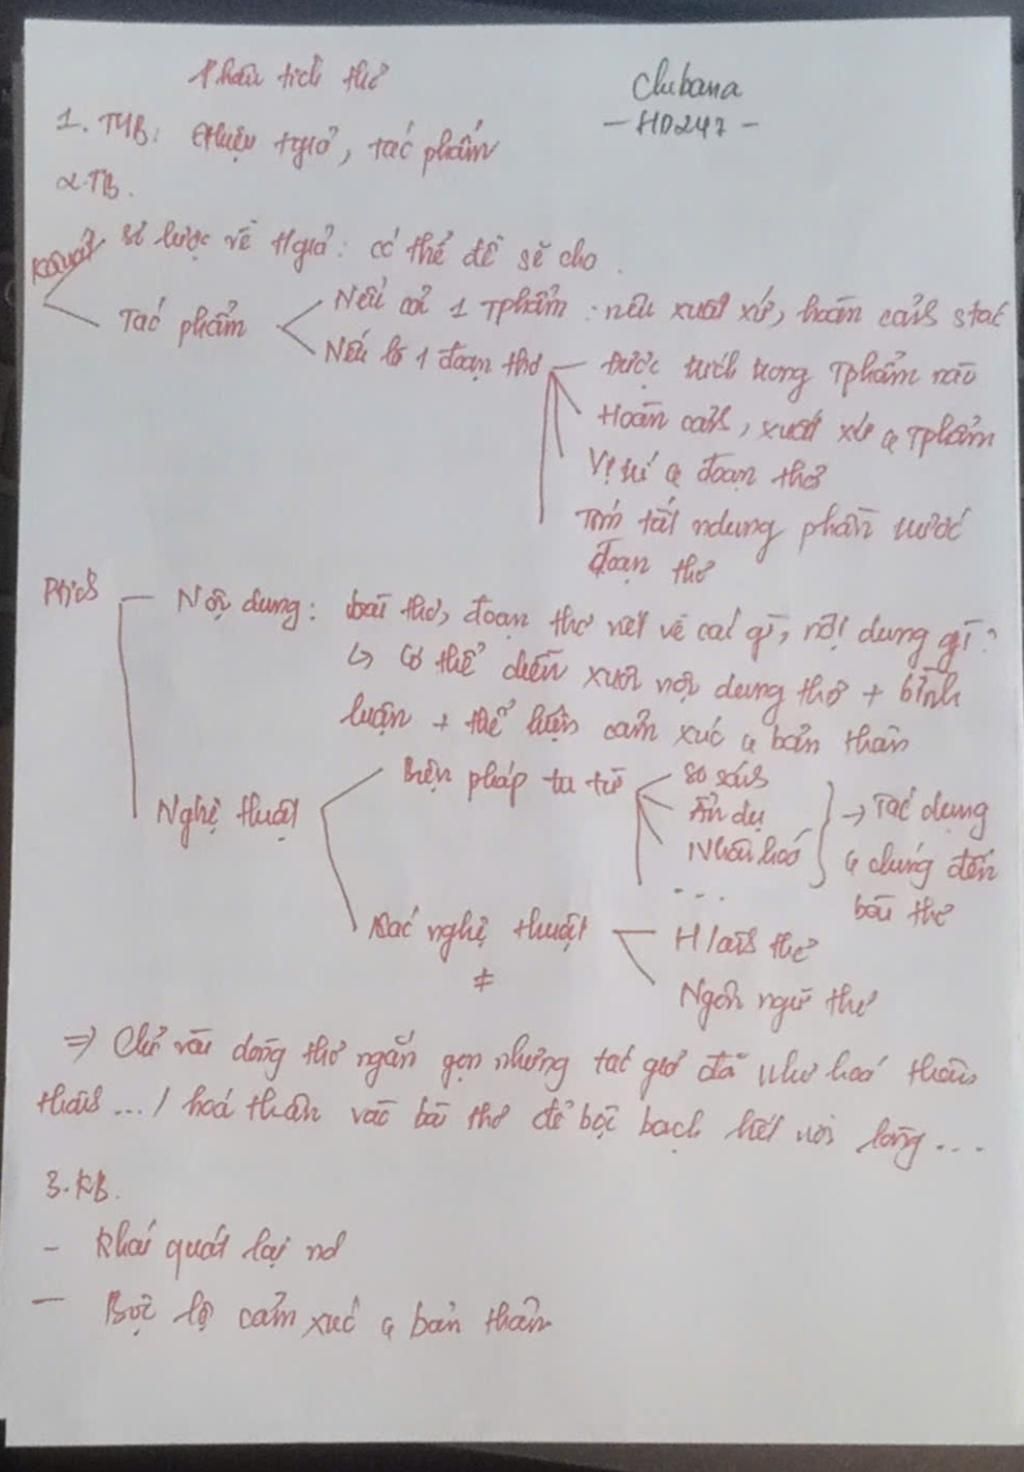 Phân tích thơ
Chubana
- HD247 -
1. MB: Gthiệu tgiả, tác phẩm
2. TB.
Kquát
sơ lược về tgiả: có thể đề sẽ cho.
Tác phẩm
Nếu cả 1 Tphẩm: nêu xuất xứ, hoàn cảnh stác
Nếu là 1 đoạn thơ
được trích trong Tphẩm nào
Hoàn cảnh, xuất xứ q Tphẩm
Vị trí q đoạn thơ
Tóm tắt ndung phần trước
đoạn thơ
Ptích
Nội dung: bài thơ, đoạn thơ viết về cái gì, nội dung gì?
↳ Có thể diễn xuôi nội dung thơ + bình
luận + thể hiện cảm xúc q bản thân
Nghệ thuật
Biện pháp tu từ
so sánh
Ẩn dụ
Nhân hoá
...
→ Tác dụng
q chúng đến
bài thơ
Các nghệ thuật
≠
H/ảnh thơ
Ngôn ngữ thơ
⇒ Chỉ vài dòng thơ ngắn gọn nhưng tác giả đã như hoá thân
thành ... / hoá thân vào bài thơ để bộc bạch hết nỗi lòng ...
3. KB.
- Khái quát lại nd
- Bộc lộ cảm xúc q bản thân